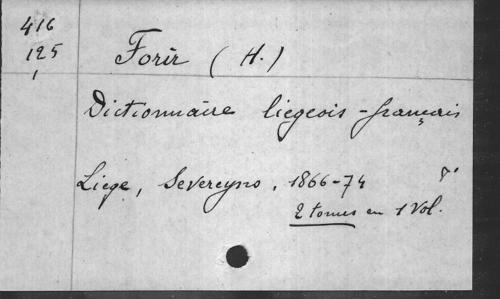 416
125
1
Forir (H.)
Dictionnaire liegeois-français
Liege, Severeyns, 1866-74 8°
2 tomes en 1 Vol.